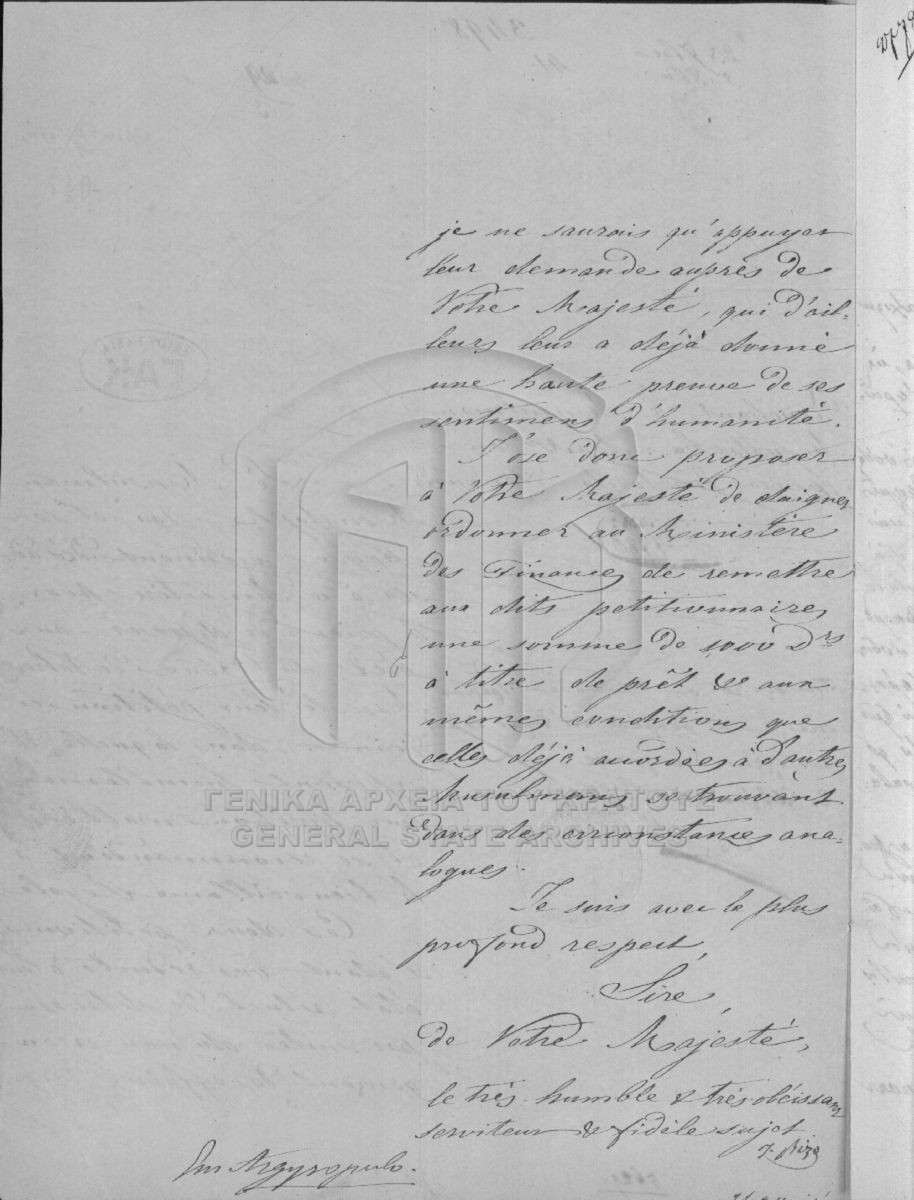 je ne saurais qu'appuyer
leur demande auprès de
Votre Majesté, qui d'ail-
leurs leur a déjà donné
une haute preuve de ses
sentimens d'humanité.
J'ose donc proposer
à Votre Majesté de daigner
ordonner au Ministère
des Finances de remettre
aux dits petitionnaires
une somme de 1000 Drs
à titre de prêt & aux
mêmes conditions que
celles déjà accordées à d'autres
Musulmans se trouvant
dans des circonstances ana-
logues.
Je suis avec le plus
profond respect,
Sire,
de Votre Majesté,
le très-humble & très obéissant
serviteur & fidèle sujet
J. Rizo
Em Argyropulo.
ΓΕΝΙΚΑ ΑΡΧΕΙΑ ΤΟΥ ΚΡΑΤΟΥΣ
GENERAL STATE ARCHIVES